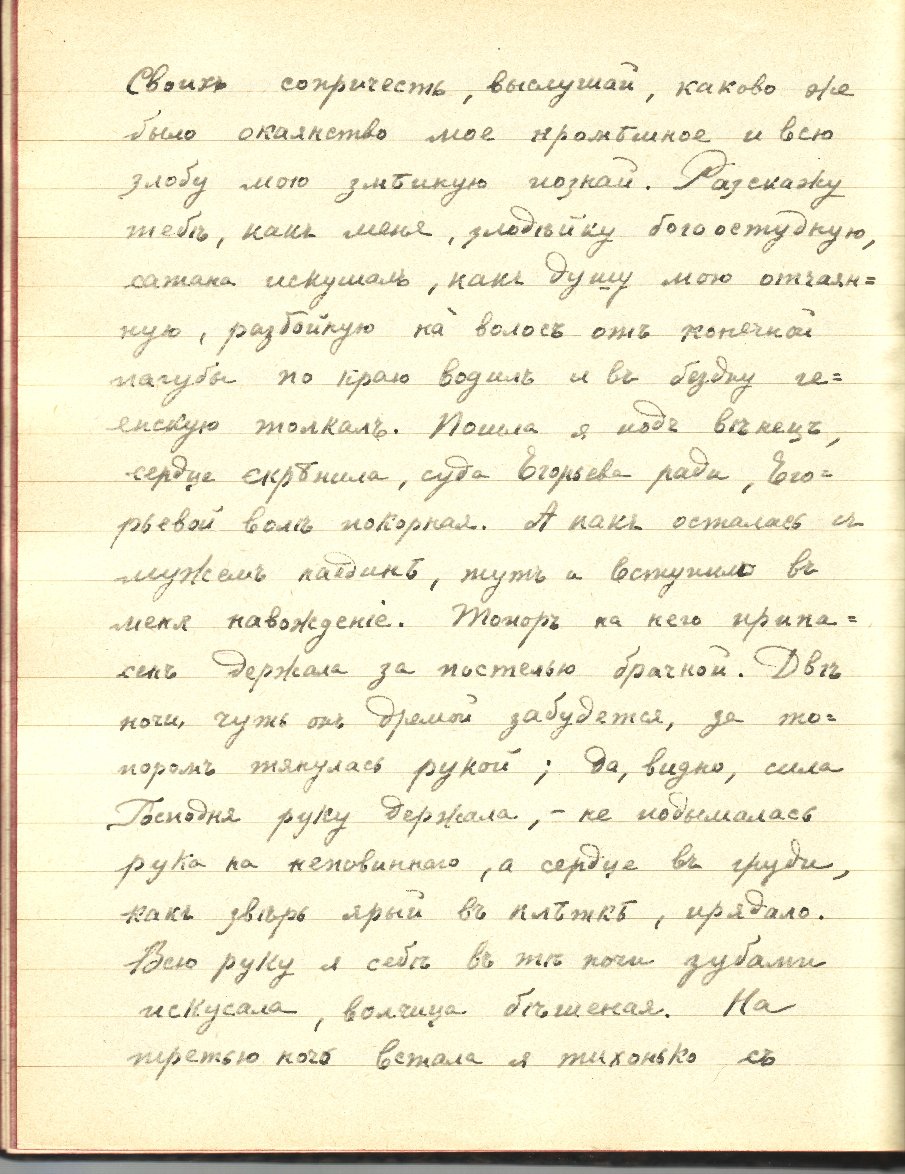 Своихъ сопричесть, выслушай, каково же
было окаянство мое кромѣшное и всю
злобу мою змѣиную познай. Разскажу
тебѣ, какъ меня, злодѣйку богоостудную,
сатана искушалъ, какъ душу мою отчаян=
ную, разбойную на волосъ отъ конечной
пагубы по краю водилъ и въ бездну ге=
енскую толкалъ. Пошла я подъ вѣнецъ,
сердце скрѣпила, суда Егорьева ради, Его=
рьевой волѣ покорная. А какъ осталась съ
мужемъ наединѣ, тутъ и вступило въ
меня навожденіе. Топоръ на него припа=
сенъ держала за постелью брачной. Двѣ
ночи, чуть онъ дремой забудется, за то=
поромъ тянулась рукой; да, видно, сила
Господня руку держала, – не подымалась
рука на неповиннаго, а сердце въ груди,
какъ звѣрь ярый въ клѣткѣ, прядало.
Всю руку я себѣ въ тѣ ночи зубами
искусала, волчица бѣшеная. На
третью ночь встала я тихонько съ